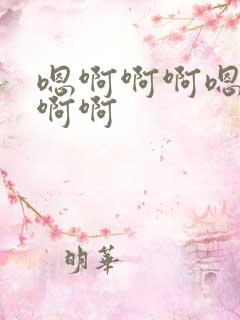 嗯啊啊啊嗯
啊啊
明華